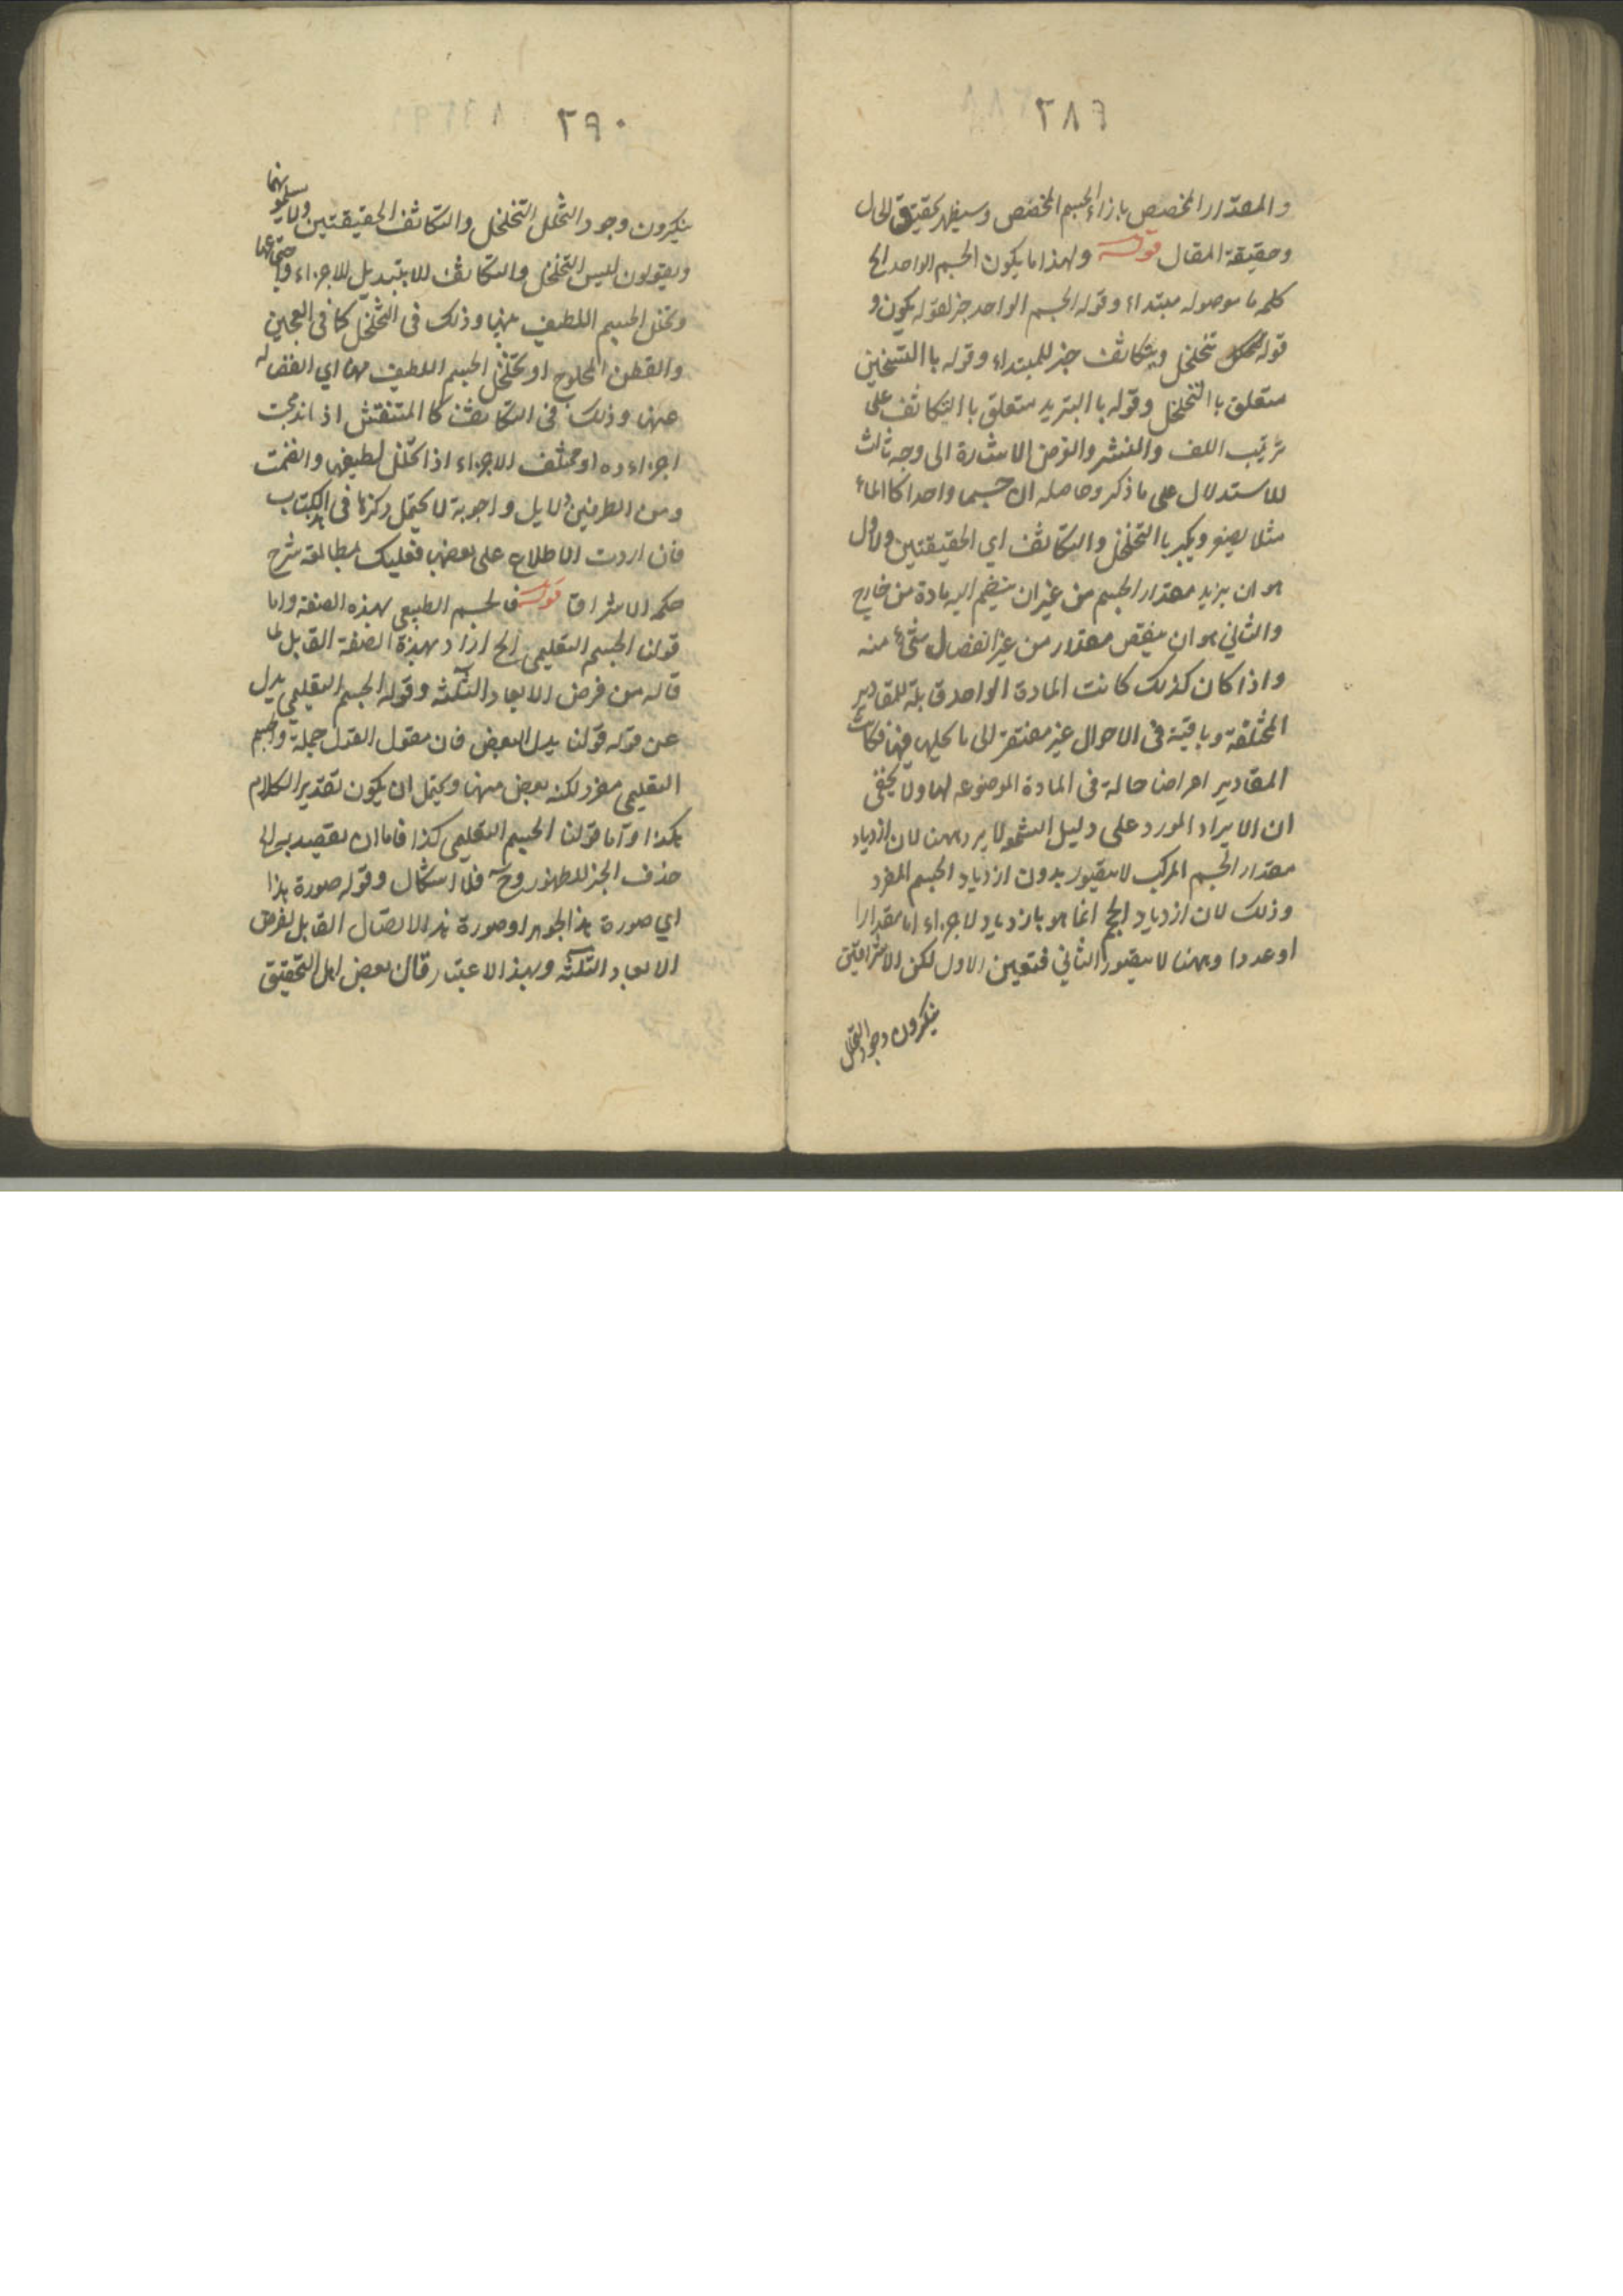 ٢٨٩
والمقدار المخصص بازاء الجسم المخصص وسيظهر تحقيق الحال
وحقيقة المقال قوله ولهذا ما يكون الجسم الواحد الخ
كلمه ما موصوله مبتداء وقوله الجسم الواحد خبر لقوله يكون و
قوله تتخلخل ويتكاثف خبر للمبتداء وقوله باالتسخين
متعلق باالتخلخل وقوله باالتبريد متعلق باالتكاثف على
ترتيب اللف والنشر والغرض الاشارة الى وجه ثالث
للاستدلال على ما ذكر وحاصله ان جسما واحدا كاالماء
مثلا يصغر ويكبر باالتخلخل والتكاثف اي الحقيقتين والاول
هو ان يزيد مقدار الجسم من غير ان ينضم اليه مادة من خارج
والثاني هو ان ينقص مقدار من غير انفصال شئ منه
واذا كان كذلك كانت المادة الواحد قابلة للمقادير
المختلفة وباقية فى الاحوال غير مفتقر الى ما يحلها فيها فكانت
المقادير اعراضا حالة فى المادة الموضوعه لها ولا يخفى
ان الايراد المورد على دليل الشمو لا يرد ههنا لان ازدياد
مقدار الجسم المركب لا يتصور بدون ازدياد الجسم المفرد
وذلك لان ازدياد الحجم انما هو بازدياد لاجزاء اما مقدارا
او عددا وههنا لا يتصور الثاني فتعين الاول لكن الاشراقيين
ينكرون وجود التخلل
٢٩٠
ينكرون وجود التخلل التخلخل والتكاثف الحقيقتين ولا يسلمونهما
ويقولون ليس التخلخل والتكاثف للابتبديل للاجزاء واجتماعها
وتخلل الجسم اللطيف بينها وذلك فى التخلخل كما فى العجين
والقطن المحلوج او تخلخل الجسم اللطيف اي انفصاله
عنها وذلك فى التكاثف كاالمتنفتش اذ اندمجت
اجزاءه او مختلف الاجزاء اذا تخلل لطيفها وانضمت
ومن الطرفين دلايل واجوبة لا يحتمل ذكرها فى الكتاب
فان اردت الاطلاع على بعضها فعليك بمطالعة شرح
حكمه الاشراق قوله فالجسم الطبيعي بهذه الصفة واما
قولنا الجسم التعليمى الخ اراد بهذة الصفة القابل لما
قاله من فرض الابعاد الثلثه وقوله الجسم التعليمي بدل
عن قوله قولنا بدل البعض فان مقول القول جملة والجسم
التعليمى مفرد لكنه بعض منها ويحتمل ان يكون تقدير الكلام
هكذا واما قولنا الجسم التعليمى كذا فاما ان يقصد به الى
حذف الخبر للظهور وح فلا اشكال وقوله صورة هذا
اي صورة هذ الجوهر او صورة هذ الاتصال القابل لفرض
الابعاد الثلثه وبهذ الاعتبار قال بعض اهل التحقيق